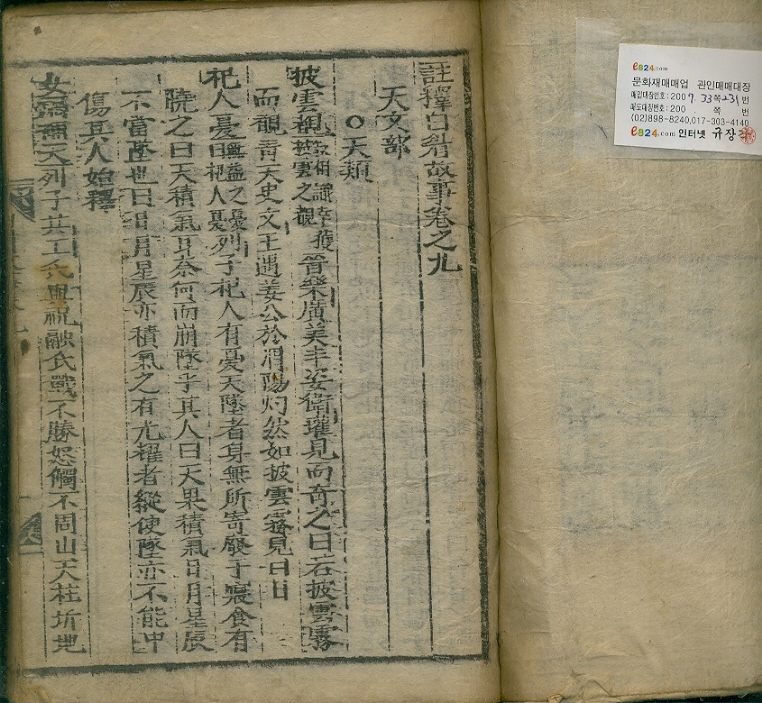 註釋白眉故事卷之九
天文部
○天類
披雲視 敘相識幸獲披雲之覩 晉樂廣美丰姿衛瓘見而奇之曰若披雲霧
而覩青天史文王遇姜公於渭陽灼然如披雲霧見白日
杞人憂 無益之憂曰杞人憂 列子杞人有憂天墜者身無所寄廢于寢食有
曉之曰天積氣耳奈何而崩墜乎其人曰天果積氣日月星辰
不當墜也曰日月星辰亦積氣之有光耀者縱使墜亦不能中
傷其人始釋
女媧補天列子共工氏與祝融氏戰不勝怒觸不周山天柱折地
eB24.com
문화재매매업 관인매매대장
매입대장번호: 2007. 33쪽-231번
매도대장번호: 200 쪽 번
(02)898-8240,017-303-4140
eB24.com 인터넷 규장각